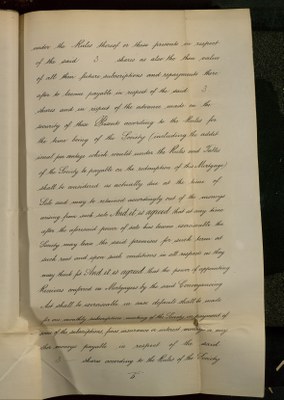 under the Rules thereof or these presents in respect
of the said 3 shares as also the then value
of all then future subscriptions and repayments there
after to become payable in respect of the said 3
shares and in respect of the advance made on the
security of these Presents according to the Rules for
the time being of the Society (including the addit
ional percentage which would under the Rules and Tables
of the Society be payable on the redemption of this Mortgage)
shall be considered as actually due at the time of
Sale and may be retained accordingly out of the moneys
arising from such sale And it is agreed that at any time
after the aforesaid power of sale has become exercisable the
Society may lease the said premises for such term at
such rent and upon such conditions in all respects as they
may think fit And it is agreed that the power of appointing
Receivers conferred on Mortgagees by the said Conveyancing
Act shall be exercisable in case default shall be made
for one monthly subscription meeting of the Society in payment of
some of the subscriptions fines insurance or interest moneys or any
other moneys payable in respect of the said
3 shares according to the Rules of the Society
5